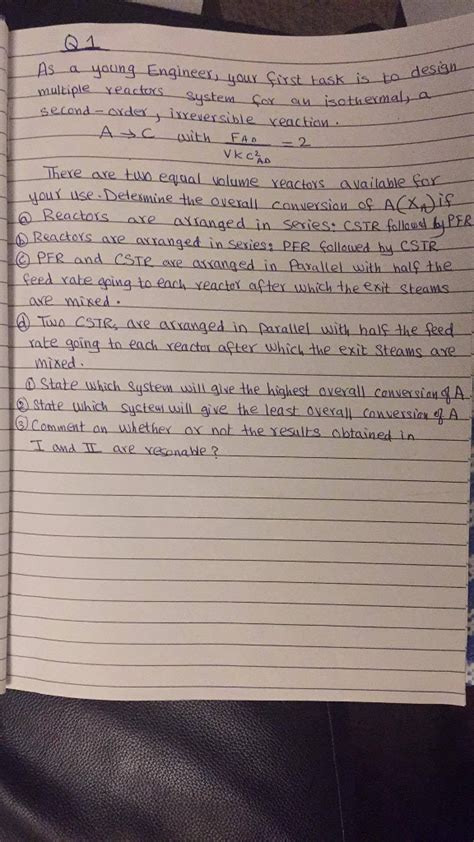 Q1
As a young Engineer, your first task is to design
multiple reactors system for an isothermal, a
second-order, irreversible reaction.
A → C with F_A0 / V k C²_A0 = 2
There are two equal volume reactors available for
your use. Determine the overall conversion of A(X_A) if
(a) Reactors are arranged in series: CSTR followed by PFR
(b) Reactors are arranged in series: PFR followed by CSTR
(c) PFR and CSTR are arranged in Parallel with half the
feed rate going to each reactor after which the exit steams
are mixed.
(d) Two CSTRs are arranged in parallel with half the feed
rate going to each reactor after which the exit steams are
mixed.
(1) State which system will give the highest overall conversion of A.
(2) State which system will give the least overall conversion of A
(3) Comment on whether or not the results obtained in
I and II are resonable?